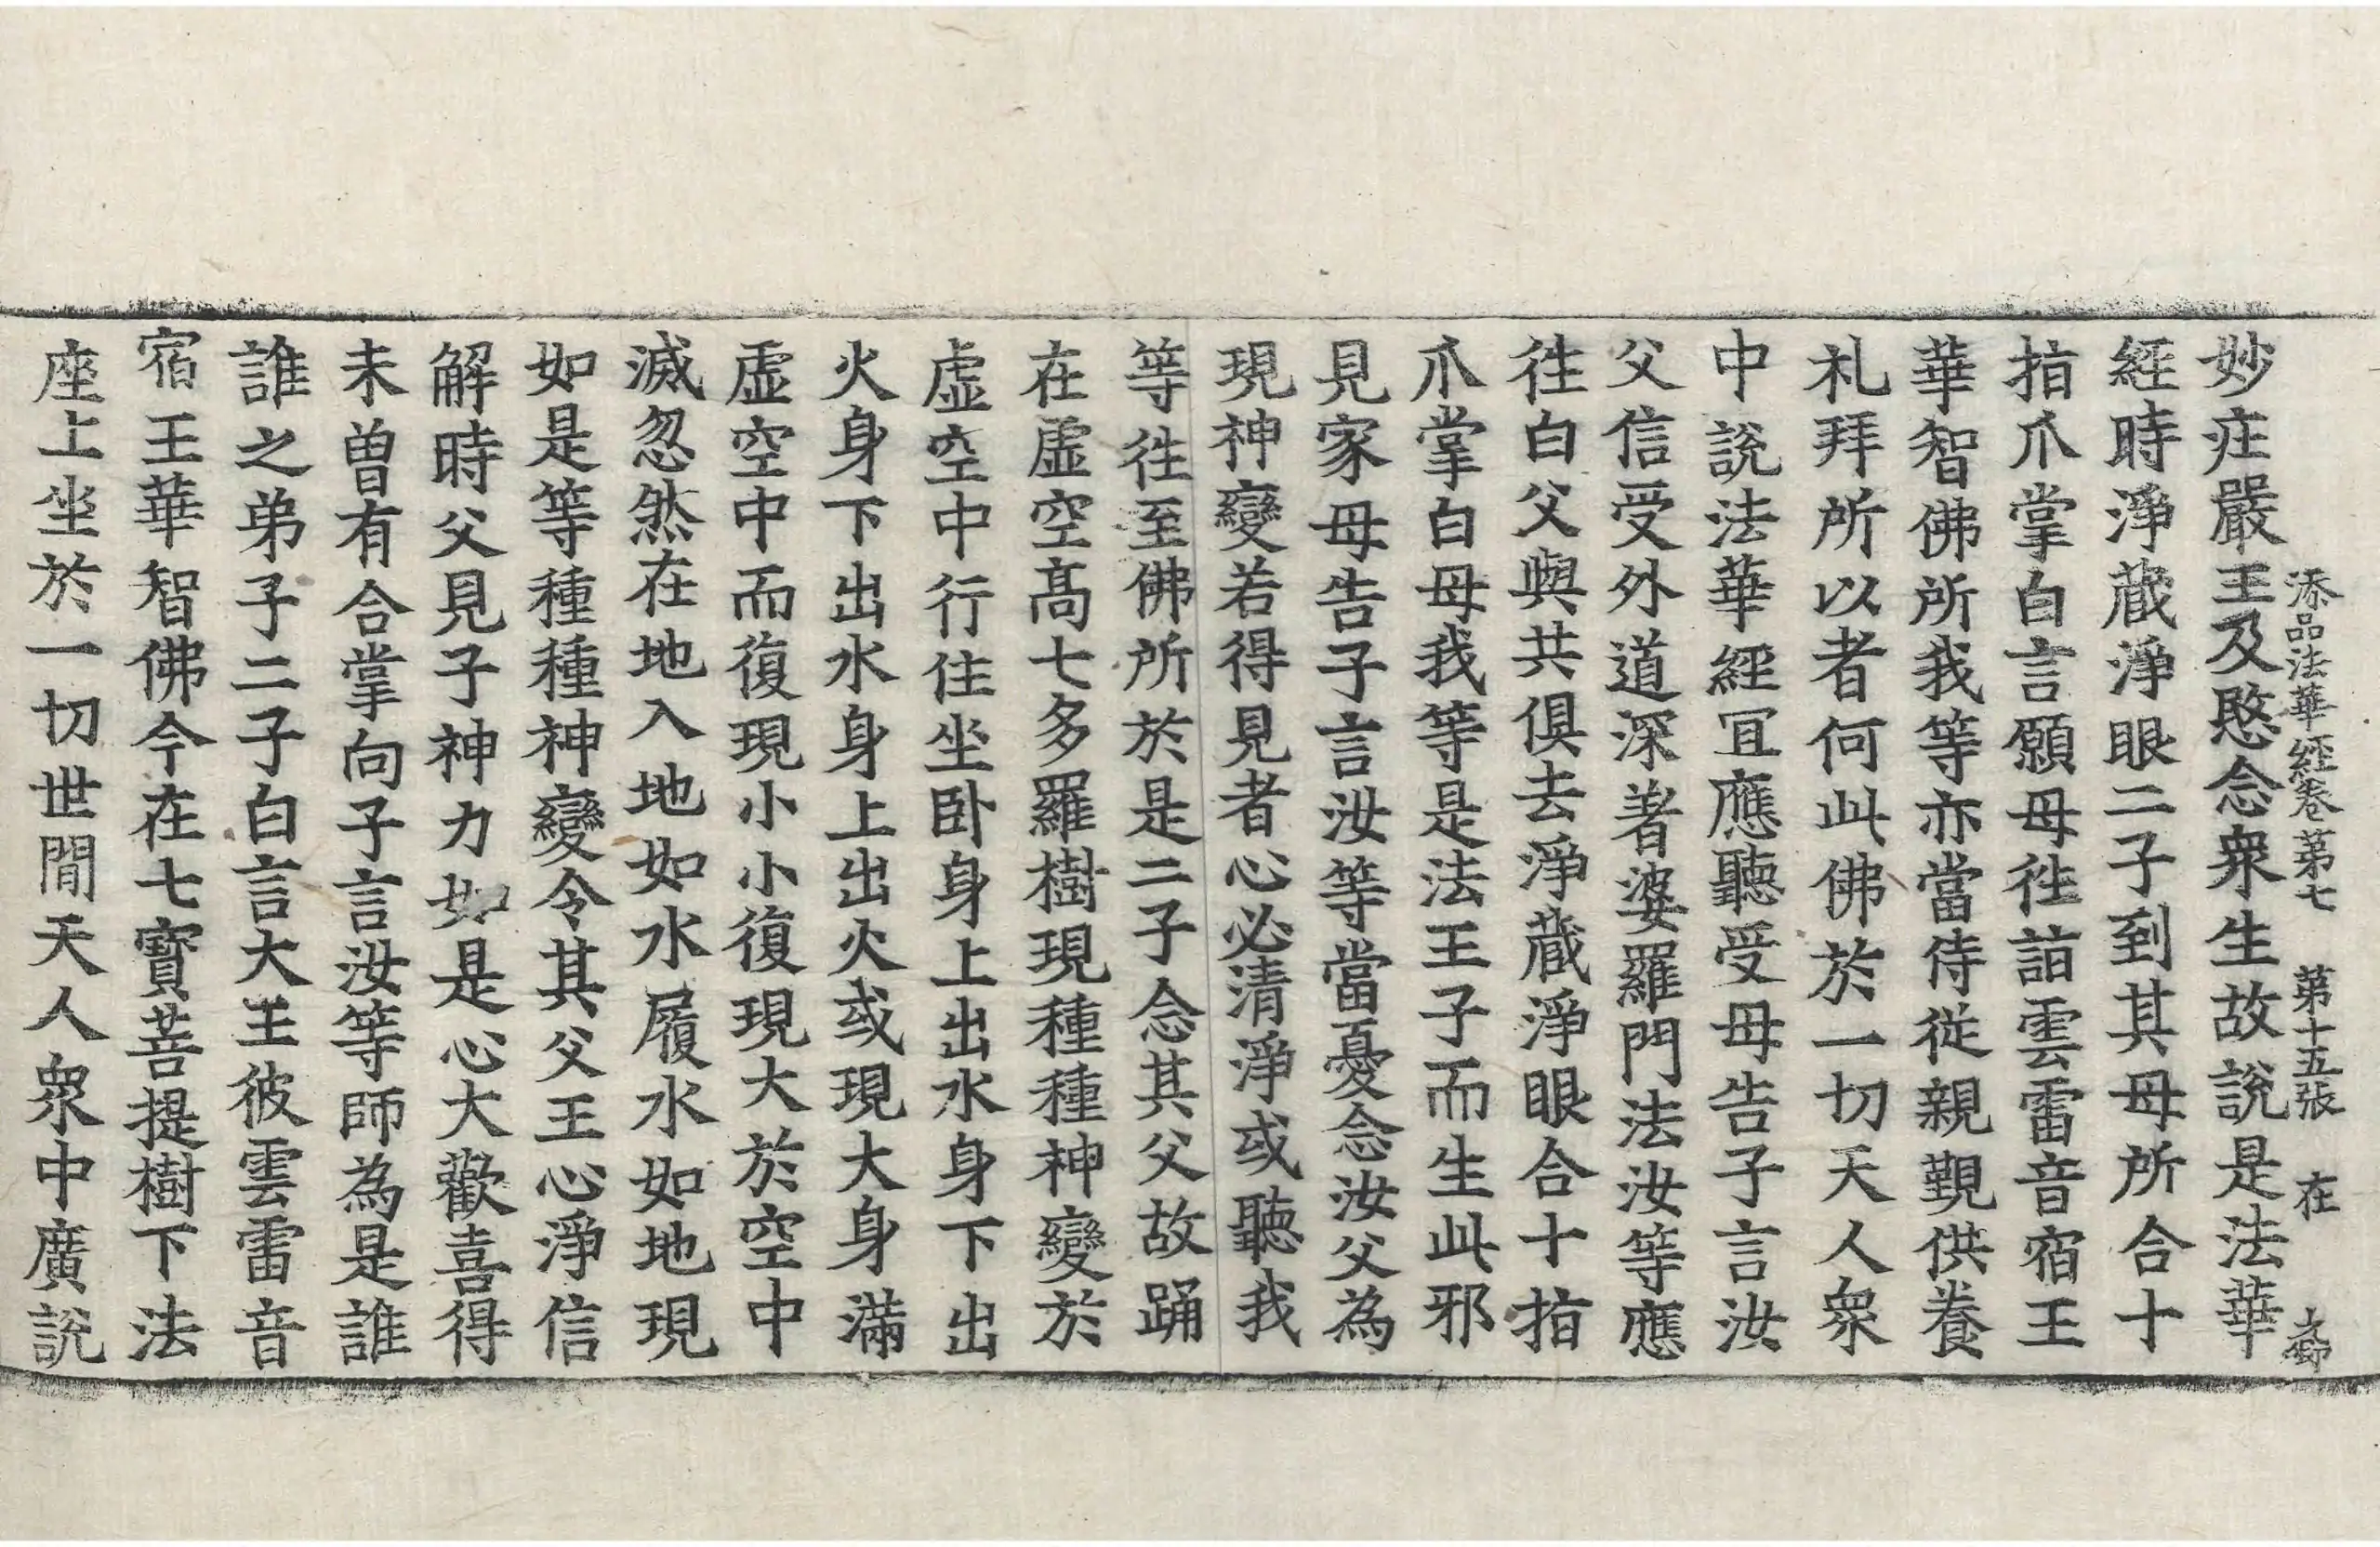 添品法華經卷第七　第十五張　在
妙庄嚴王及愍念衆生故說是法華
經時淨藏淨眼二子到其母所合十
指爪掌白言願母徃詣雲雷音宿王
華智佛所我等亦當侍從親覲供養
礼拜所以者何此佛於一切天人衆
中說法華經冝應聽受母告子言汝
父信受外道深著婆羅門法汝等應
徃白父與共俱去淨藏淨眼合十指
爪掌白母我等是法王子而生此邪
見家母告子言汝等當憂念汝父為
現神變若得見者心必清淨或聽我
等徃至佛所於是二子念其父故踊
在虛空髙七多羅樹現種種神變於
虛空中行住坐卧身上出水身下出
火身下出水身上出火或現大身滿
虛空中而復現小小復現大於空中
滅忽然在地入地如水履水如地現
如是等種種神變令其父王心淨信
解時父見子神力如是心大歡喜得
未曽有合掌向子言汝等師為是誰
誰之弟子二子白言大王彼雲雷音
宿王華智佛今在七寶菩提樹下法
座上坐於一切世間天人衆中廣說